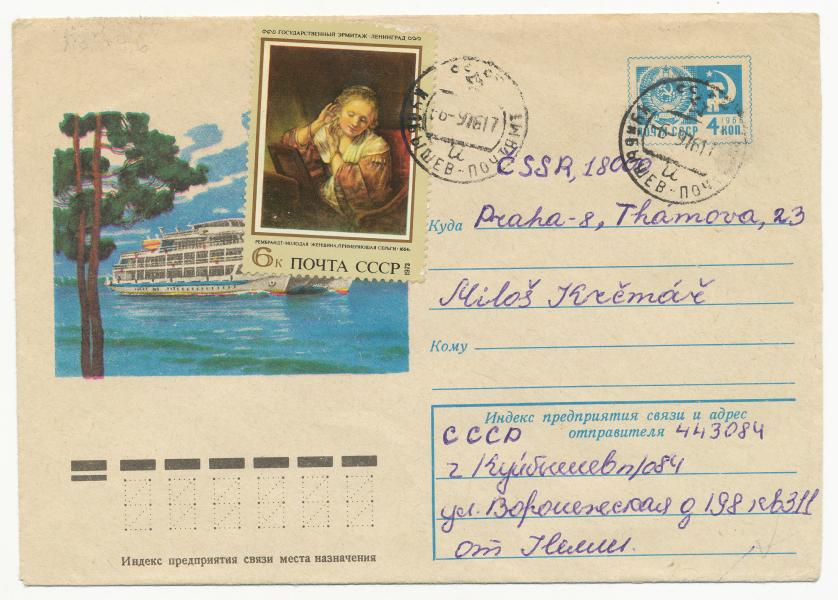 ГОСУДАРСТВЕННЫЙ ЭРМИТАЖ • ЛЕНИНГРАД
РЕМБРАНДТ • МОЛОДАЯ ЖЕНЩИНА, ПРИМЕРЯЮЩАЯ СЕРЬГИ • 1654
6к ПОЧТА СССР 1973
КУЙБЫШЕВ-ПОЧТАМТ
-6-97617
И
ПОЧТА СССР 4 КОП. 1966
-6-97617
И
ČSSR, 18000
Куда Praha-8, Thamova, 23
Miloš Krčmář
Кому
Индекс предприятия связи и адрес
отправителя 443084
СССР
г Куйбышев п/о84
ул. Воронежская д 198 кв311
от Нелли.
Индекс предприятия связи места назначения